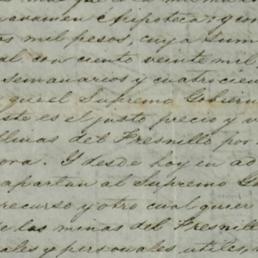 mil pesos, cuya suma
al con ciento veinte mil
semanarios y cuatrocien
que el Supremo Gobiern
ste es el justo precio y v
llinas del Fresnillo por
ora. Y desde hoy en ad
apartan al Supremo G
recurso y otro cualquier
e las minas del Fresnil
ales y personales utiles,